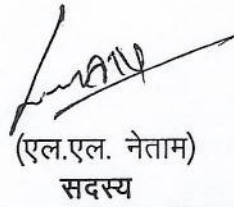 (एल.एल. नेताम)
सदस्य